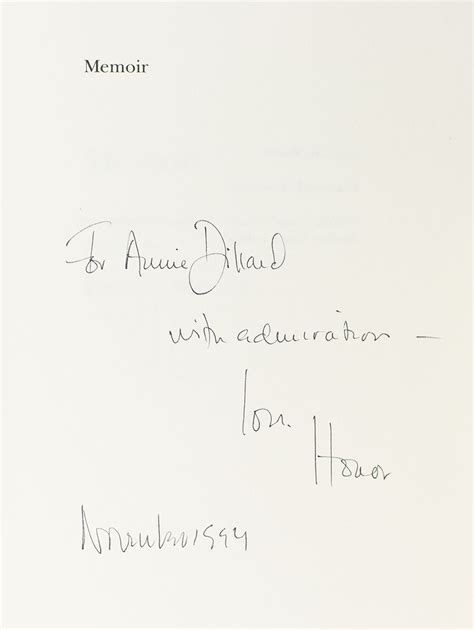 Memoir
For Annie Dillard
with admiration —
Honor
November 1994